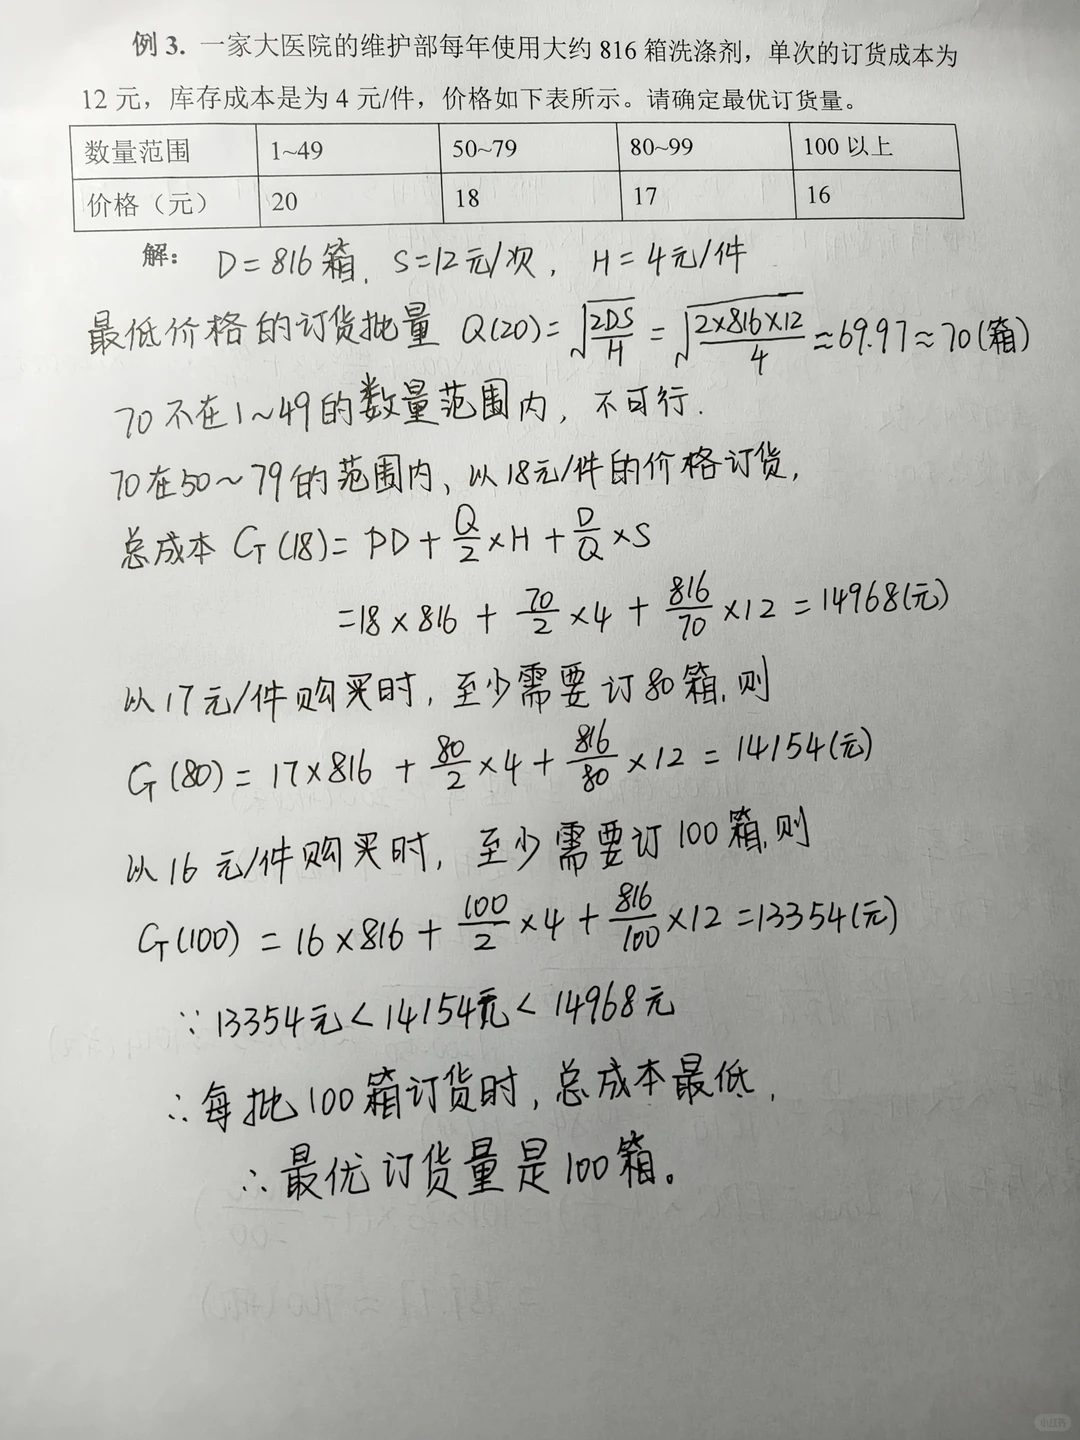 例 3. 一家大医院的维护部每年使用大约 816 箱洗涤剂，单次的订货成本为
12 元，库存成本是为 4 元/件，价格如下表所示。请确定最优订货量。
数量范围 1~49 50~79 80~99 100 以上
价格（元） 20 18 17 16
解： D=816箱, S=12元/次, H=4元/件
最低价格的订货批量 Q(20)=√(2DS/H)=√(2×816×12/4)≈69.97≈70(箱)
70不在1~49的数量范围内，不可行.
70在50~79的范围内、以18元/件的价格订货,
总成本 G(18)=PD+Q/2×H+D/Q×S
=18×816+70/2×4+816/70×12=14968(元)
以17元/件购买时，至少需要订80箱,则
G(80)=17×816+80/2×4+816/80×12=14154(元)
以16元/件购买时，至少需要订100箱,则
G(100)=16×816+100/2×4+816/100×12=13354(元)
∵13354元<14154元<14968元
∴每批100箱订货时,总成本最低,
∴最优订货量是100箱。
小红书